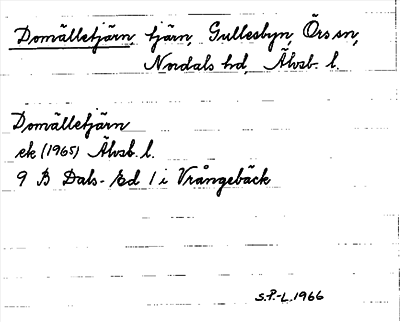 Domälletjärn, tjärn, Gullesbyn, Örs sn,
Nordals hd, Älvsb. l.
Domälletjärn
ek (1965) Älvsb. l.
9 B Dals-Ed 1 i Vrångebäck
S.P.-L. 1966